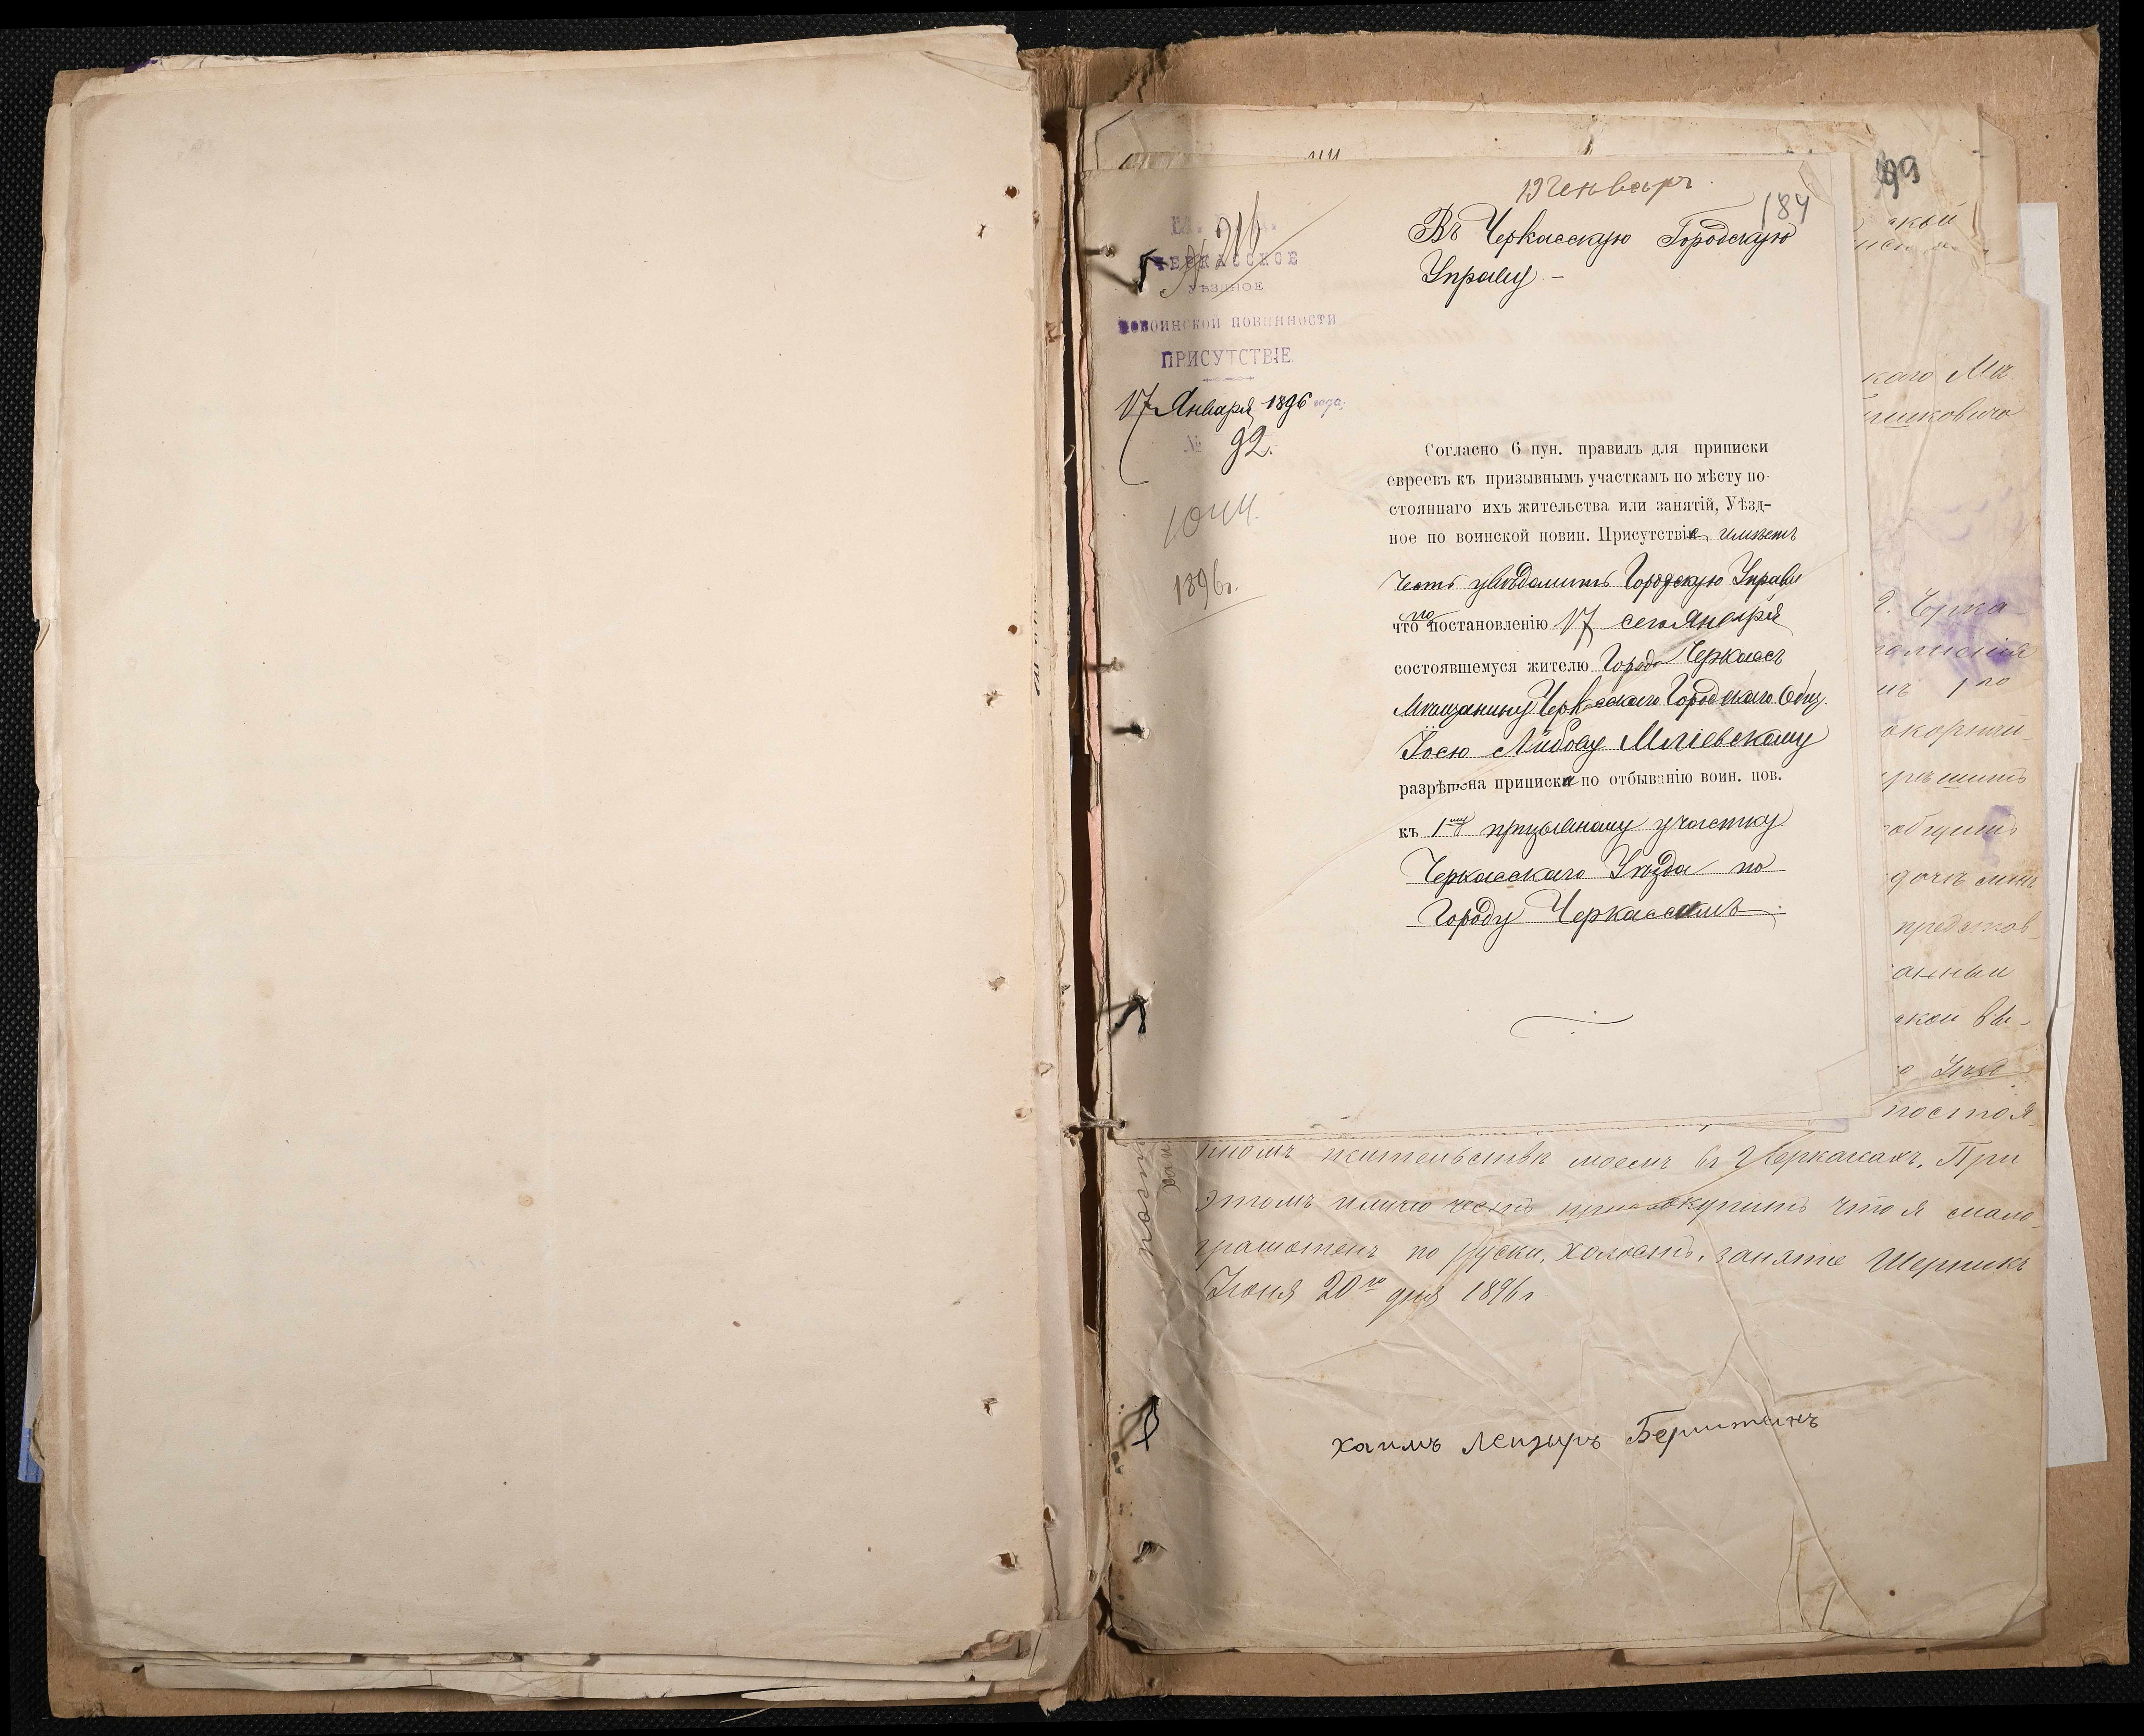 19 Генваря
184
Въ Черкасскую Городскую
Управу –
216
ЧЕРКАССКОЕ
УѢЗДНОЕ
ПО ВОИНСКОЙ ПОВИННОСТИ
ПРИСУТСТВІЕ
17 Января 1896 года
№ 92.
1044
1896г.
Согласно 6 пун. правилъ для приписки
евреевъ къ призывнымъ участкамъ по мѣсту по-
стояннаго ихъ жительства или занятій, Уѣзд-
ное по воинской повин. Присутствіе имѣетъ
честь увѣдомить Городскую Управу
что по постановленію 17 сего Января
состоявшемуся жителю Города Черкассъ
Мѣщанину Черкасскаго Городскаго Общ.
Іосю Лейбову Мліевскому
разрѣшена приписка по отбыванію воин. пов.
къ 1му призывному участку
Черкасскаго Уѣзда по
Городу Черкассамъ.
99
ской
каго Мѣ
2. Черка-
1го
представ-
анный
ской вы-
постоя
нномъ жительствѣ моемъ въ Черкасахъ, При
этомъ имѣю честь присовокупить что я мало-
грамотенъ по руски, холостъ, занятіе
Іюня 20го дня 1896г.
Хаимъ Лейзыръ Берштынъ